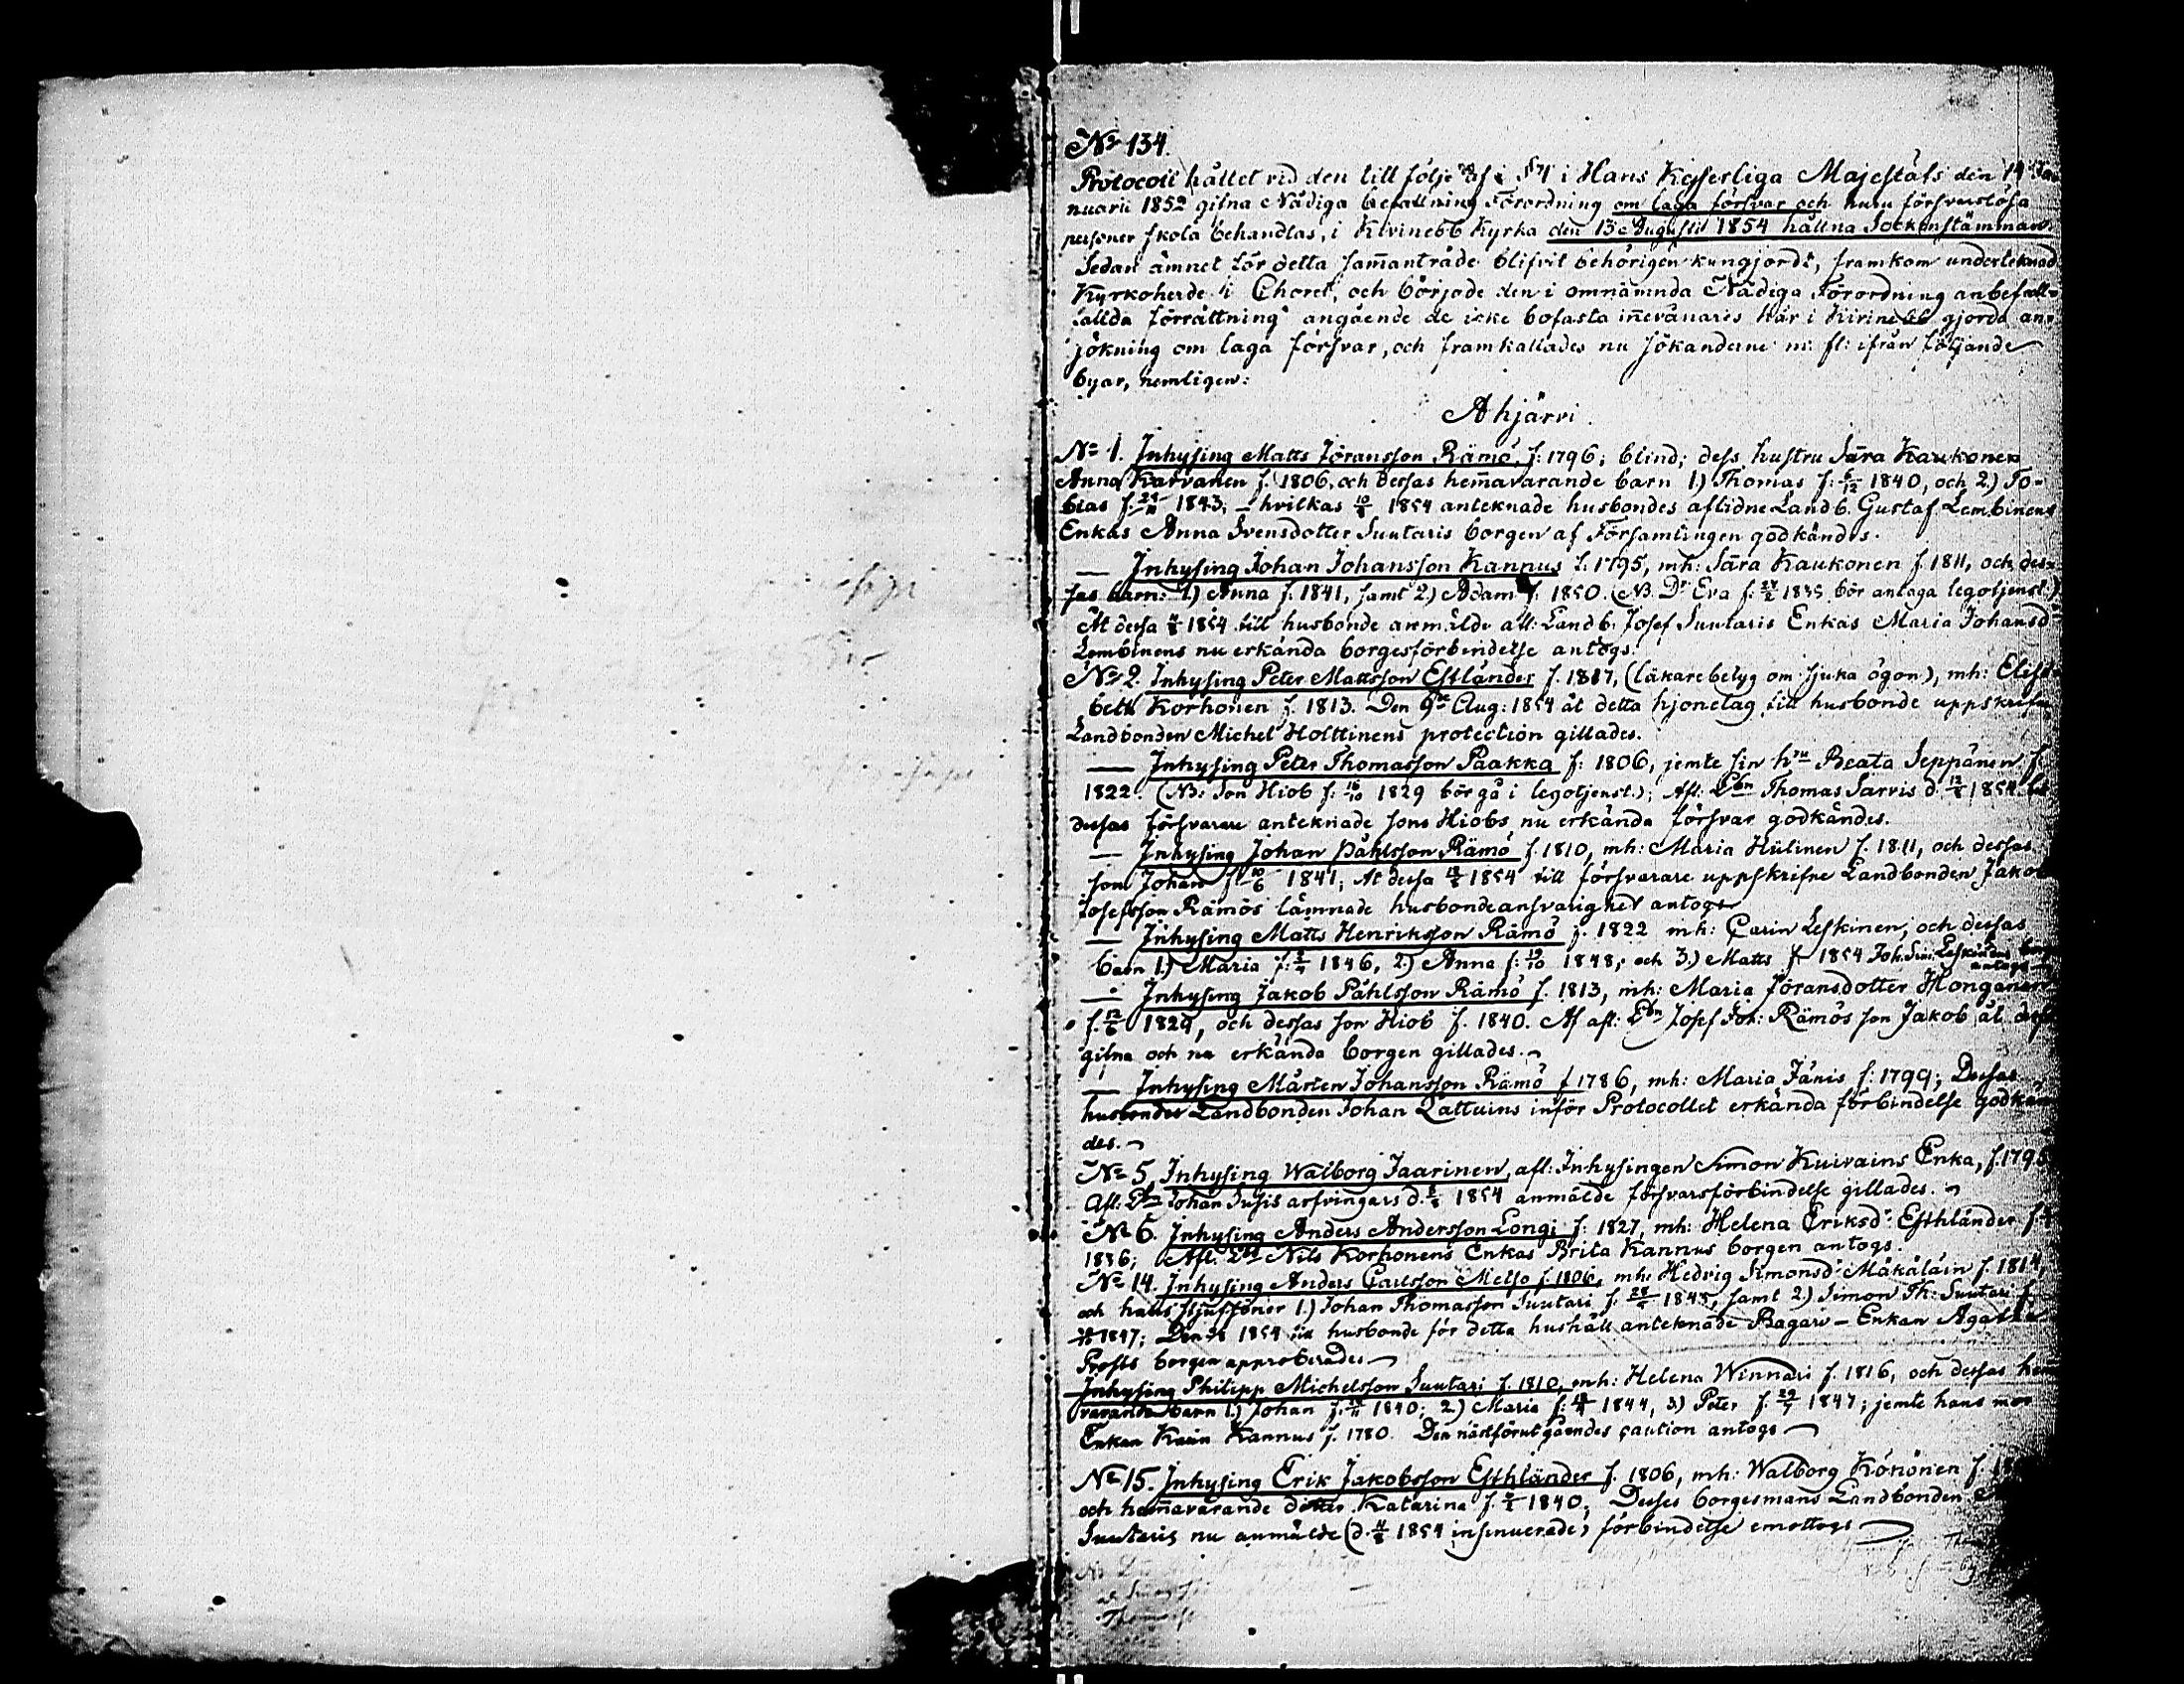 No 134.
Protocoll hållet vid den till följe af § 71 i Hans Kejserliga Majestäts den 14 Ja-
nuarii 1852 gifna Nådiga befallning Förordning om laga försvar och huru försvarslösa
personer skola behandlas, i Kivinebb Kyrka den 13 Augusti 1854 hållna Sockenstämman.
Sedan ämnet för detta sam̄anträde blifvit behörigen kungjordt, framkom underteknad
Kyrkoherde i Choret, och började den i omnämnda Nådiga Förordning anbefall-
lallda förrättning angående de icke bofasta in̄evånares här i Kivinebb gjorda an-
sökning om laga försvar, och framkallades nu sökanderne m: fl: ifrån följande
byar, nemligen:
Ahjärvi.
No 1. Inhysing Matts Jöransson Rämö, f: 1796; blind; dess hustru Sara Kaukonen
Anna Karvanen f. 1806, och dessas hem̄avarande barn 1.) Thomas f: 6/12 1840, och 2.) To-
bias f: 1843; – hvilkas 10/8 1854 anteknade husbondes aflidne Landb. Gustaf Lembinens
Enkas Anna Svensdotter Suutaris borgen af Församlingen godkändes.
— Inhysing Johan Johansson Kannus f. 1795, mh: Sara Kaukonen f. 1811, och des-
sas barn: 1.) Anna f. 1841, samt 2.) Adam f. 1850. (NB. Dr Eva f: 1835 bör antaga legotjenst.)
At dessa 1854 till husbonde anmälde afl: Landb. Josef Suutaris Enkas Maria Johansd
Lembinens nu erkända borgesförbindelse antogs.
No 2. Inhysing Peter Mattsson Estländer f. 1817, (läkarebetyg om sjuka ögon), mh: Elisa-
beth Korhonen f. 1813. Den 9de Aug: 1854 åt detta hjonelag till husbonde uppskrifne
Landbonden Michel Holttinens protection gillades.
— Inhysing Peter Thomasson Paakka f: 1806, jemte sin hru Beata Seppänen f.
1822. (NB: Son Hiob f: 16/10 1829 bör gå i legotjenst.); Afl: Lbn Thomas Sarvis d. 12/8 1854 till
dessas försvarare anteknade sons Hiobs nu erkända försvar godkändes.
— Inhysing Johan Påhlsson Rämö f. 1810, mh: Maria Hülinen f. 1811, och dessas
son Johan f. 10/6 1841; At dessa 1854 till försvarare uppskrifne Landbonden Jakob
Josefsson Rämös lämnade husbondeansvarighet antogs
— Inhysing Matts Henriksson Rämö f. 1822 mh: Carin Leskinen, och dessas
barn 1.) Maria f: 1846, 2.) Anna f: 19/10 1848, och 3.) Matts f. 1854 Joh. Sim: Leskinens
antogs
— Inhysing Jakob Påhlsson Rämö f. 1813, mh: Maria Jöransdotter Honganen
f. 12/6 1829, och dessas son Hiob f. 1840. Af afl: Lbn Josef Joh: Rämös son Jakob åt
gifna och nu erkända borgen gillades.
— Inhysing Mårten Johansson Rämö f 1786, mh: Maria Jänis f: 1799; Dessas
husbondes Landbonden Johan Lattuins inför Protocollet erkända förbindelse godkän-
des.
No 5. Inhysing Walborg Jaarinen, afl: Inhysingen Simon Kuivains Enka, f. 1795
Afl: Lbn Johan Susis arfvingars d. 1854 anmälde försvarsförbindelse gillades.
No 6. Inhysing Anders Andersson Longi f: 1827, mh: Helena Eriksdr Esthländer f.
1836; Afl. Lbn Nils Korhonens Enkas Brita Kannus borgen antogs.
No 14. Inhysing Anders Carlsson Metso f. 1806, mh: Hedvig Simonsdr Mäkäläin f. 1814,
och hans stjufsöner 1.) Johan Thomasson Suutari f. 1845, samt 2.) Simon Th: Suutari f.
1847; Den 1854 till husbonde för detta hushåll anteknade Bagare-Enkan Agatha
Prosts borgen approberades
Inhysing Philipp Michelsson Suutari f. 1810, mh: Helena Winnari f. 1816, och dessas hem̄-
varande barn 1.) Johan f. 1840; 2.) Maria f: 1844, 3.) Peter f. 29/7 1847; jemte hans mor
Enkan Karin Kannus f. 1780. Den nästförutgåendes caution antogs
No 15. Inhysing Erik Jakobsson Esthländer f. 1806, mh: Walborg Könönen f.
och hem̄avarande dotter Katarina f. 1840; Desses borgesmans Landbonden
Suutaris nu anmälde (d. 11/8 1854 insinuerade) förbindelse emottogs